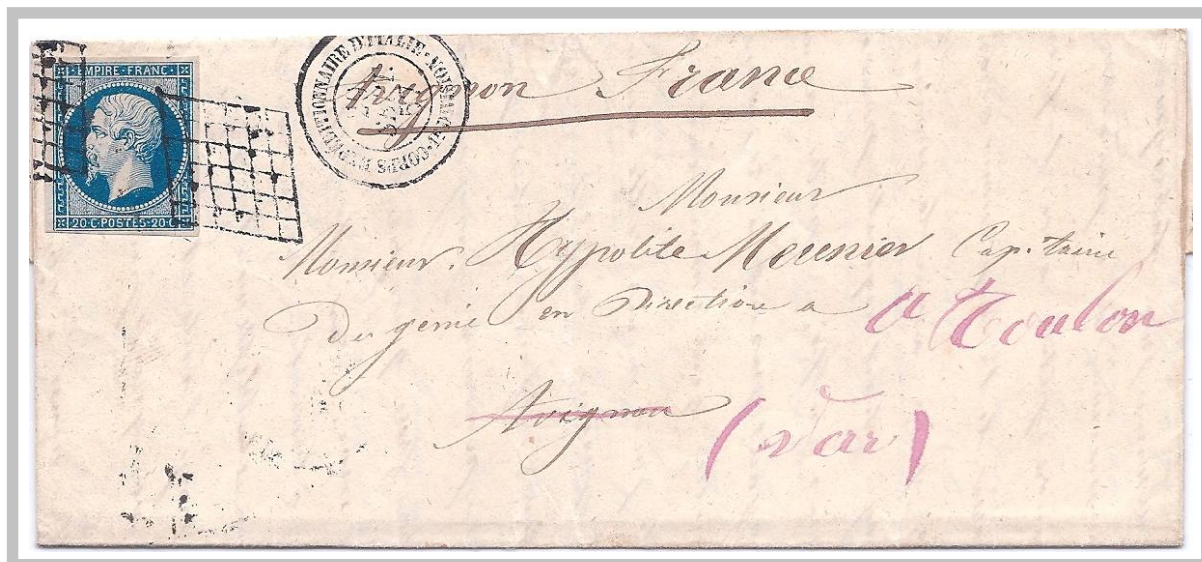 EMPIRE·FRANC·
20·C·POSTES·20·C
CORPS EXPÉDITIONNAIRE D'ITALIE·
Avignon France
Monsieur
Monsieur. Hypolite Meunier Capitaine
Du génie en Direction a a Toulon
Avignon
(Var)